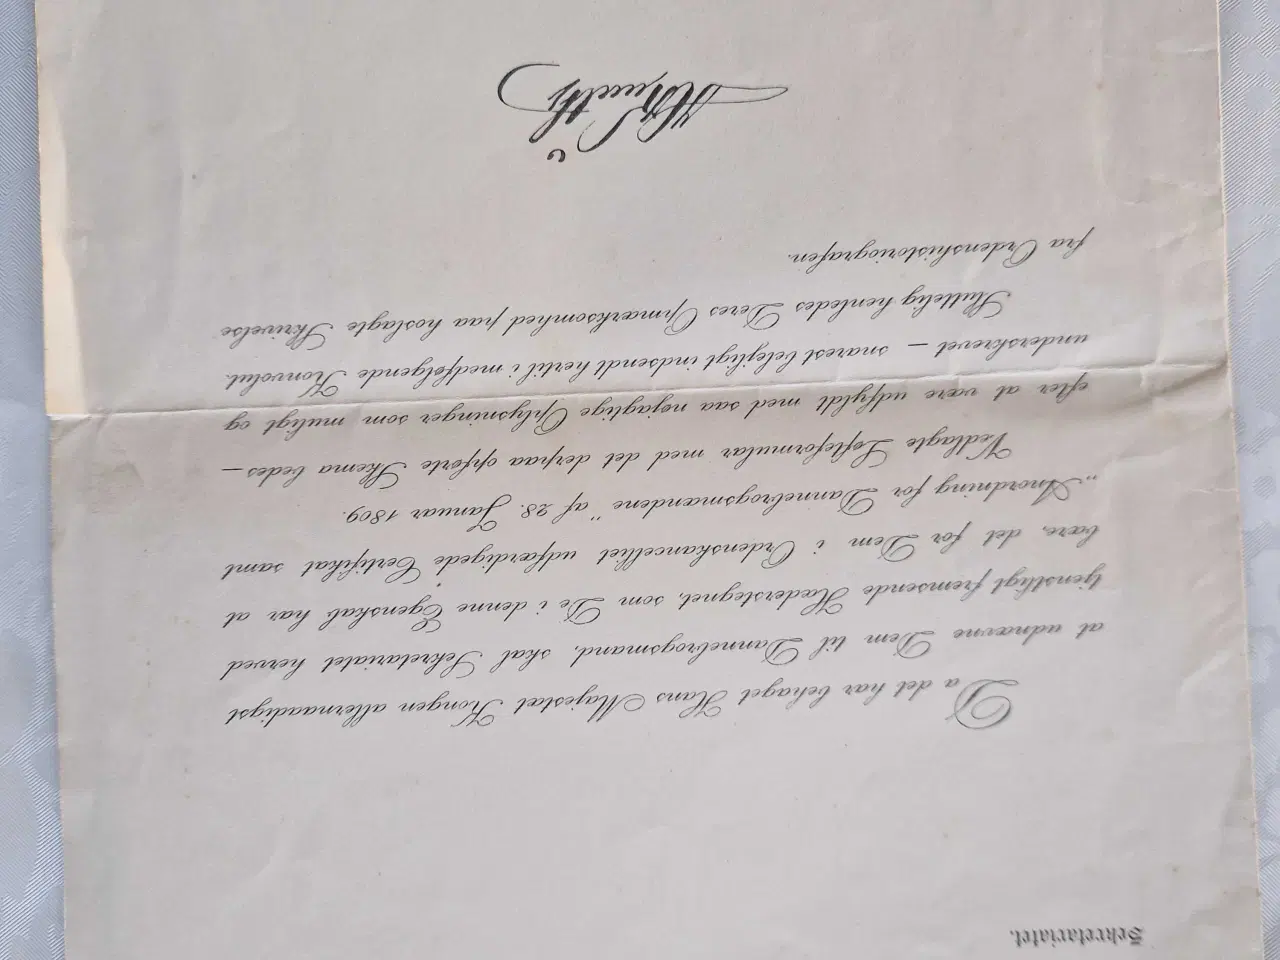 Sekretariatet.
Da det har behaget Hans Majestæt Kongen allernaadigst
at udnævne Dem til Dannebrogsmand, skal Sekretariatet herved
tjenstligt fremsende Hæderstegnet, som De i denne Egenskab har at
bære, det for Dem i Ordenskancelliet udfærdigede Certifikat samt
„Anordning for Dannebrogsmændene" af 28. Januar 1809.
Vedlagte Løfteformular med det derpaa opførte Skema bedes –
efter at være udfyldt med saa nøjagtige Oplysninger som muligt og
underskrevet – snarest belejligt indsendt hertil i medfølgende Konvolut.
Sluttelig henledes Deres Opmærksomhed paa hoslagte Skrivelse
fra Ordenshistoriografen.